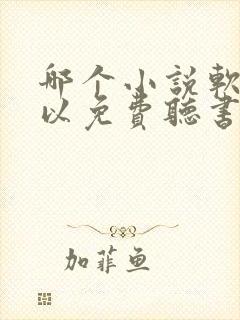 哪个小説軟
以免費聽書
加菲鱼